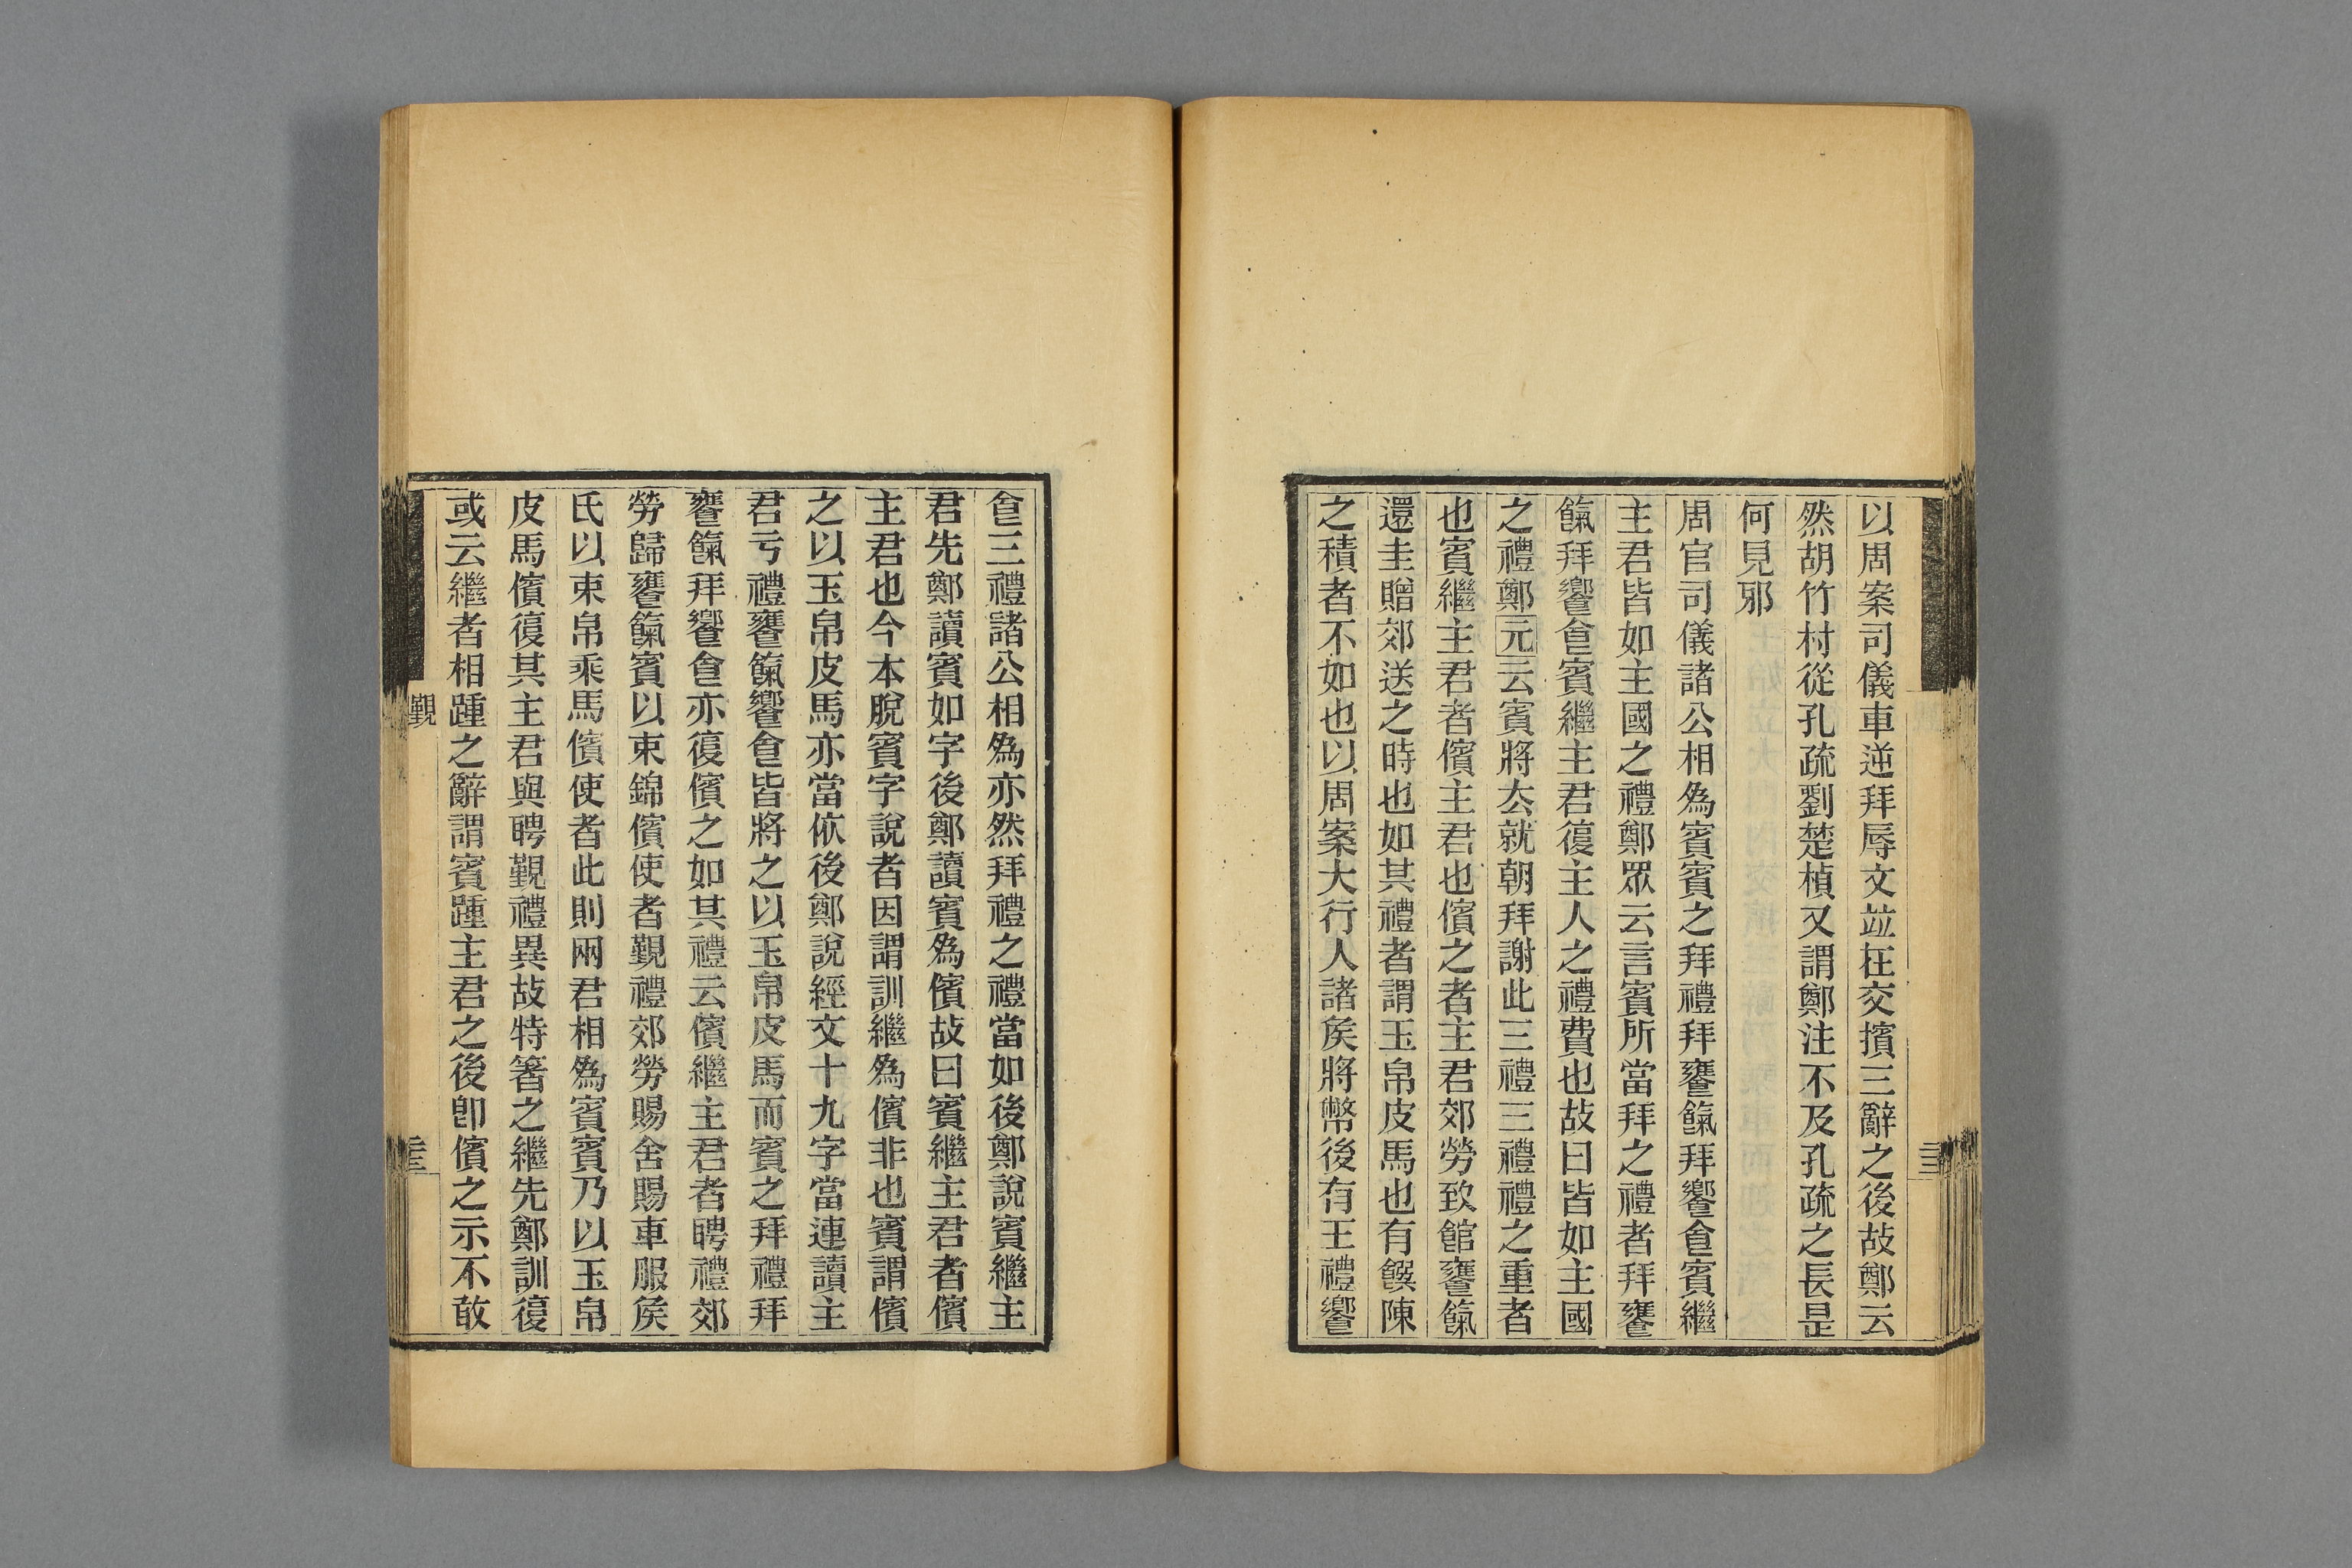 以周案司儀車逆拜辱文竝在交擯三辭之後故鄭云
然胡竹村從孔疏劉楚楨又謂鄭注不及孔疏之長是
何見邪
周官司儀諸公相爲賓賓之拜禮拜饔餼拜饗食賓繼
主君皆如主國之禮鄭眾云言賓所當拜之禮者拜饔
餼拜饗食賓繼主君復主人之禮費也故曰皆如主國
之禮鄭元云賓將去就朝拜謝此三禮三禮禮之重者
也賓繼主君者儐主君也儐之者主君郊勞致館饔餼
還圭贈郊送之時也如其禮者謂玉帛皮馬也有饌陳
之積者不如也以周案大行人諸矦將幣後有王禮饗
食三禮諸公相爲亦然拜禮之禮當如後鄭說賓繼主
君先鄭讀賓如字後鄭讀賓爲儐故曰賓繼主君者儐
主君也今本脫賓字說者因謂訓繼爲儐非也賓謂儐
之以玉帛皮馬亦當依後鄭說經文十九字當連讀主
君亏禮饔餼饗食皆將之以玉帛皮馬而賓之拜禮拜
饔餼拜饗食亦復儐之如其禮云儐繼主君者聘禮郊
勞歸饔餼賓以束錦儐使者覲禮郊勞賜舍賜車服矦
氏以束帛乘馬儐使者此則兩君相爲賓賓乃以玉帛
皮馬儐復其主君與聘覲禮異故特箸之繼先鄭訓復
或云繼者相踵之辭謂賓踵主君之後卽儐之示不敢
覲